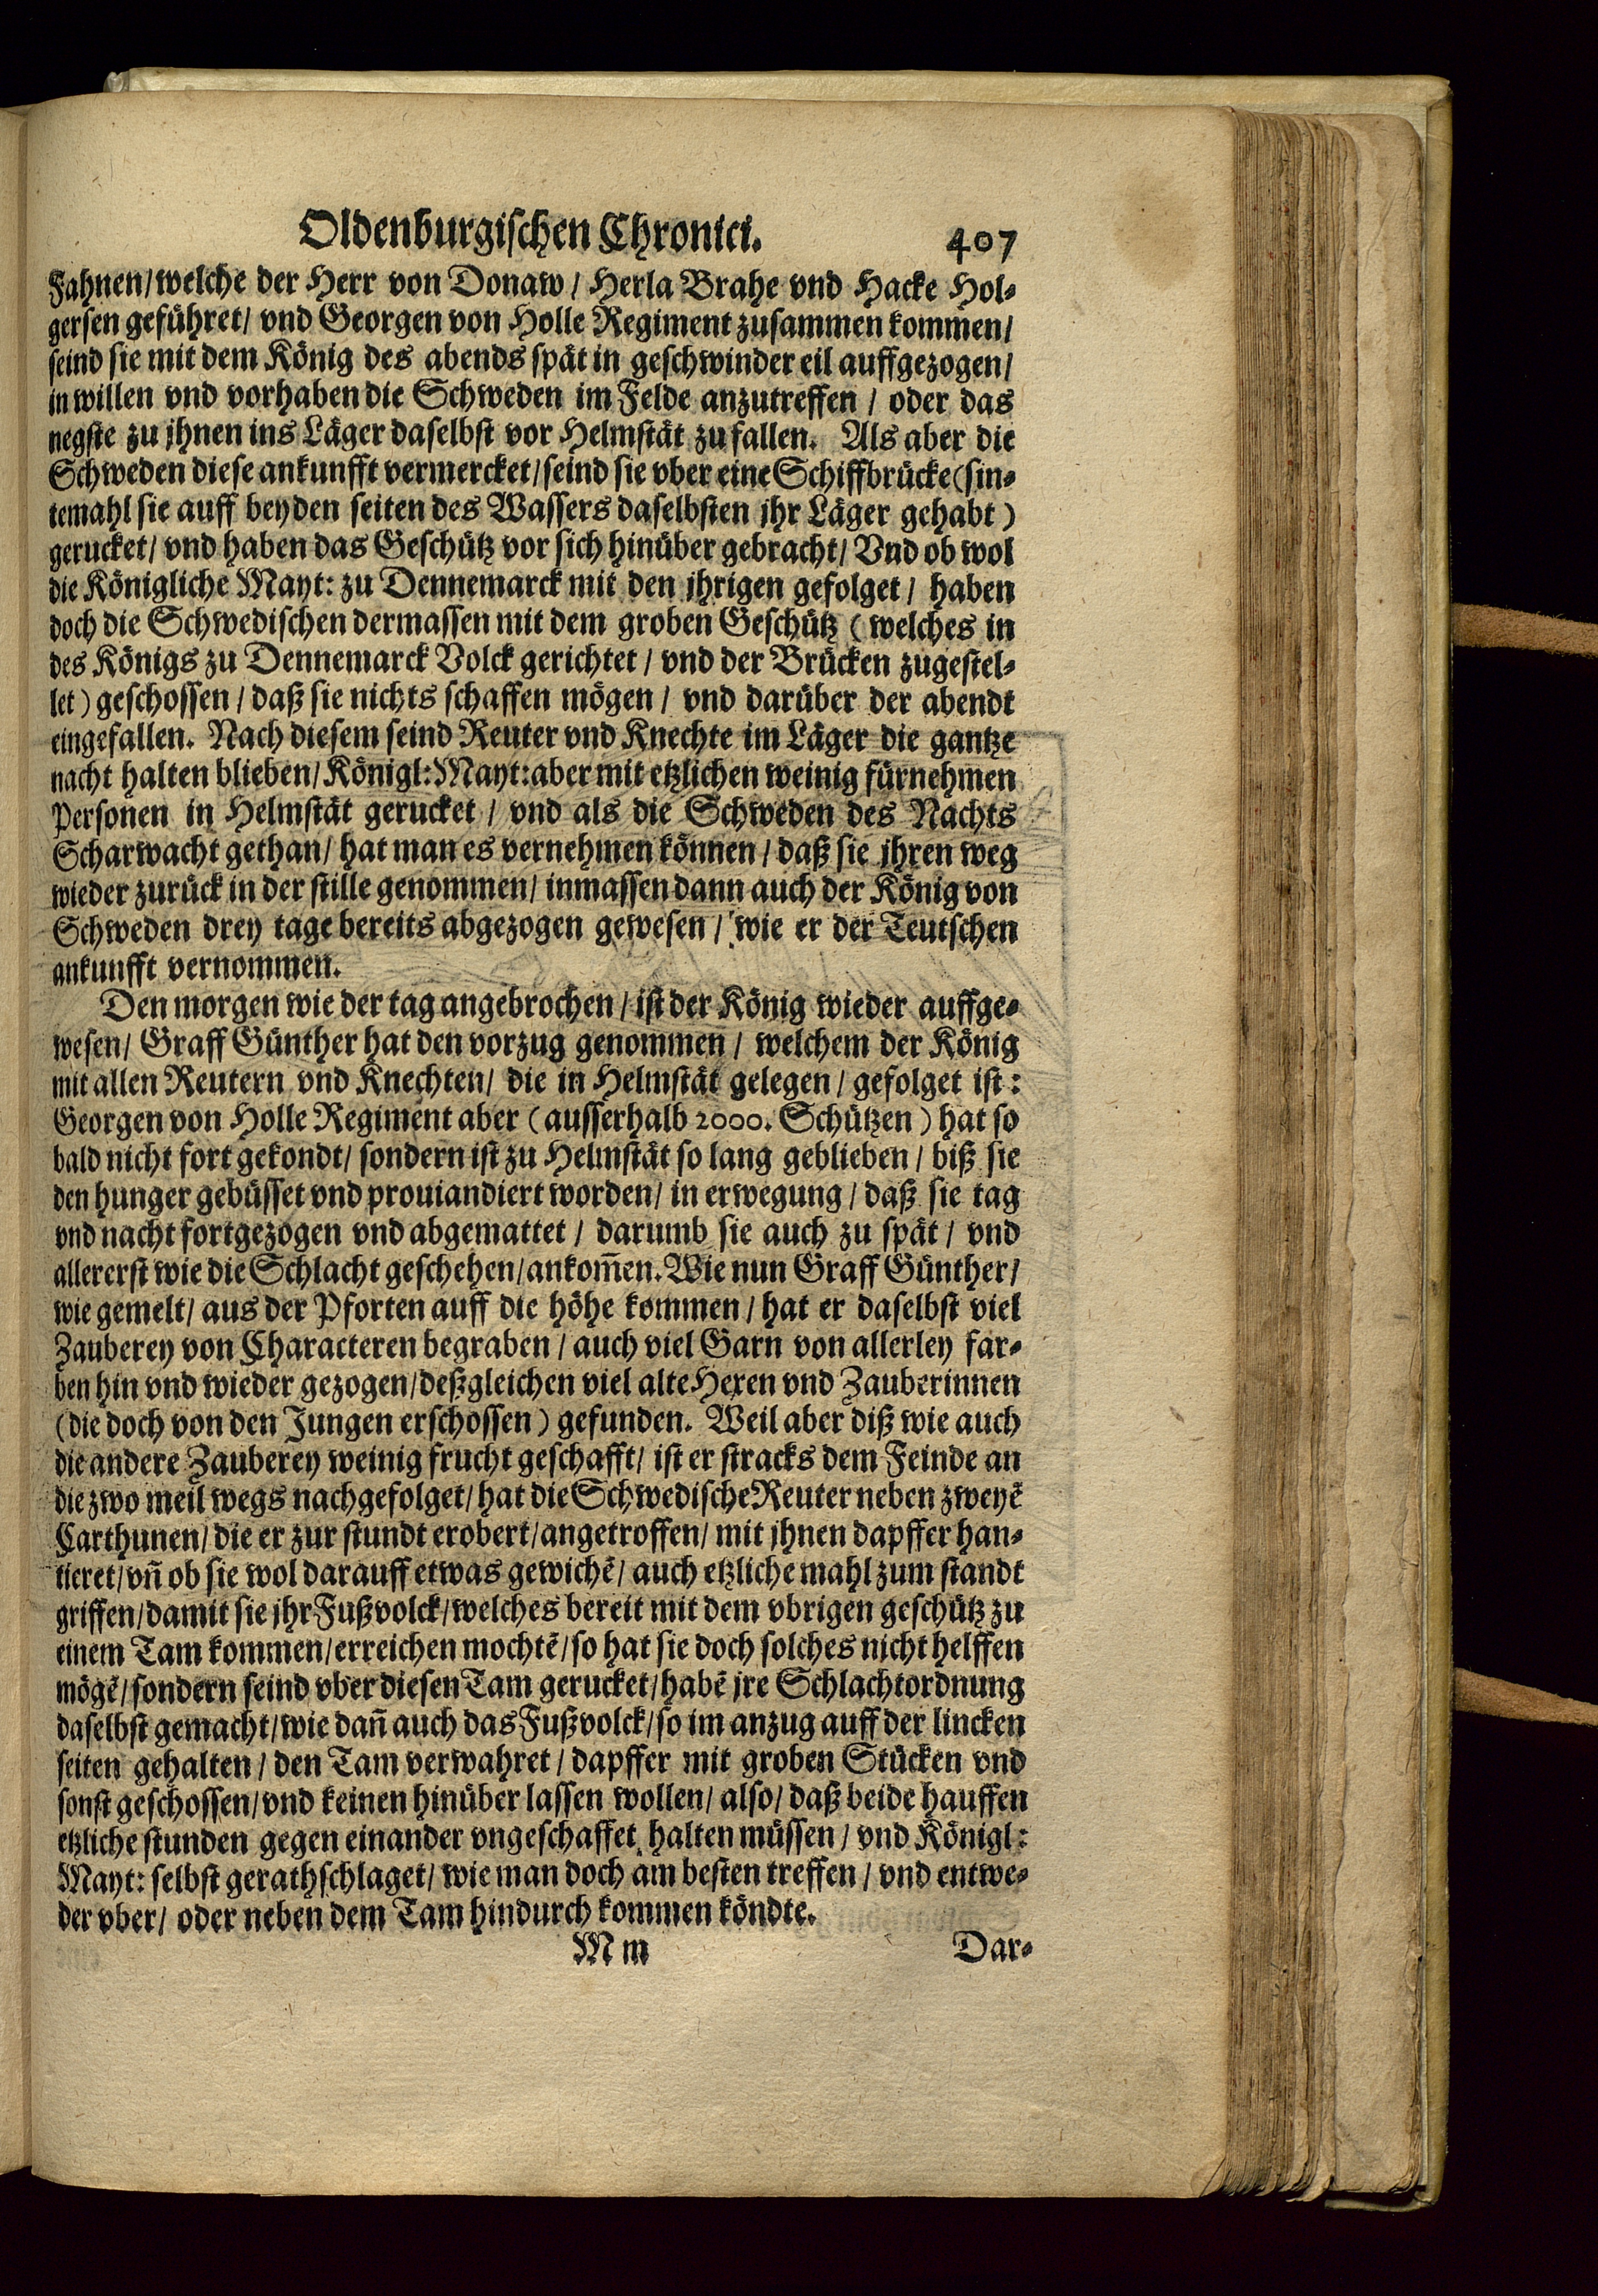 Oldenburgischen Chronici. 407
Fahnen/ welche der Herr von Donaw / Herla Brahe vnd Hacke Hol-
gersen geführet/ vnd Georgen von Holle Regiment zusammen kommen/
seind sie mit dem König des abends spät in geschwinder eil auffgezogen/
in willen vnd vorhaben die Schweden im Felde anzutreffen / oder das
negste zu jhnen ins Läger daselbst vor Helmstät zu fallen. Als aber die
Schweden diese ankunfft vermercket/ seind sie vber eine Schiffbrücke (sin-
temahl sie auff beyden seiten des Wassers daselbsten jhr Läger gehabt)
gerucket/ vnd haben das Geschütz vor sich hinüber gebracht/ Vnd ob wol
die Königliche Mayt: zu Dennemarck mit den jhrigen gefolget / haben
doch die Schwedischen dermassen mit dem groben Geschütz (welches in
des Königs zu Dennemarck Volck gerichtet / vnd der Brücken zugestel-
let) geschossen / daß sie nichts schaffen mögen / vnd darüber der abendt
eingefallen. Nach diesem seind Reuter vnd Knechte im Läger die gantze
nacht halten blieben/ Königl: Mayt: aber mit etzlichen weinig fürnehmen
Personen in Helmstät gerucket / vnd als die Schweden des Nachts
Scharwacht gethan/ hat man es vernehmen können / daß sie jhren weg
wieder zurück in der stille genommen/ inmassen dann auch der König von
Schweden drey tage bereits abgezogen gewesen / wie er der Teutschen
ankunfft vernommen.
Den morgen wie der tag angebrochen / ist der König wieder auffge-
wesen/ Graff Günther hat den vorzug genommen / welchem der König
mit allen Reutern vnd Knechten/ die in Helmstät gelegen / gefolget ist:
Georgen von Holle Regiment aber (ausserhalb 2000. Schützen) hat so
bald nicht fort gekondt/ sondern ist zu Helmstät so lang geblieben / biß sie
den hunger gebüsset vnd prouiandiert worden/ in erwegung / daß sie tag
vnd nacht fortgezogen vnd abgemattet / darumb sie auch zu spät / vnd
allererst wie die Schlacht geschehen/ ankom̃en. Wie nun Graff Günther/
wie gemelt/ aus der Pforten auff die höhe kommen / hat er daselbst viel
Zauberey von Characteren begraben / auch viel Garn von allerley far-
ben hin vnd wieder gezogen/ deßgleichen viel alte Hexen vnd Zauberinnen
(die doch von den Jungen erschossen) gefunden. Weil aber diß wie auch
die andere Zauberey weinig frucht geschafft/ ist er stracks dem Feinde an
die zwo meil wegs nachgefolget/ hat die Schwedische Reuter neben zweyẽ
Carthunen/ die er zur stundt erobert/ angetroffen/ mit jhnen dapffer han-
tieret/ vñ ob sie wol darauff etwas gewichẽ/ auch etzliche mahl zum standt
griffen/ damit sie jhr Fußvolck/ welches bereit mit dem vbrigen geschütz zu
einem Tam kommen/ erreichen mochtẽ/ so hat sie doch solches nicht helffen
mögẽ/ sondern seind vber diesen Tam gerucket/ habẽ jre Schlachtordnung
daselbst gemacht/ wie dañ auch das Fußvolck/ so im anzug auff der lincken
seiten gehalten / den Tam verwahret / dapffer mit groben Stücken vnd
sonst geschossen/ vnd keinen hinüber lassen wollen/ also/ daß beide hauffen
etzliche stunden gegen einander vngeschaffet halten müssen / vnd Königl:
Mayt: selbst gerathschlaget/ wie man doch am besten treffen / vnd entwe-
der vber/ oder neben dem Tam hindurch kommen köndte.
M m Dar-